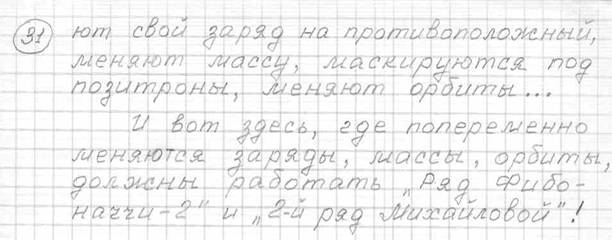 31 ют свой заряд на противоположный,
меняют массу, маскируются под
позитроны, меняют орбиты...
И вот здесь, где попеременно
меняются заряды, массы, орбиты,
должны работать „Ряд Фибо-
наччи-2" и „2-й ряд Михайловой"!